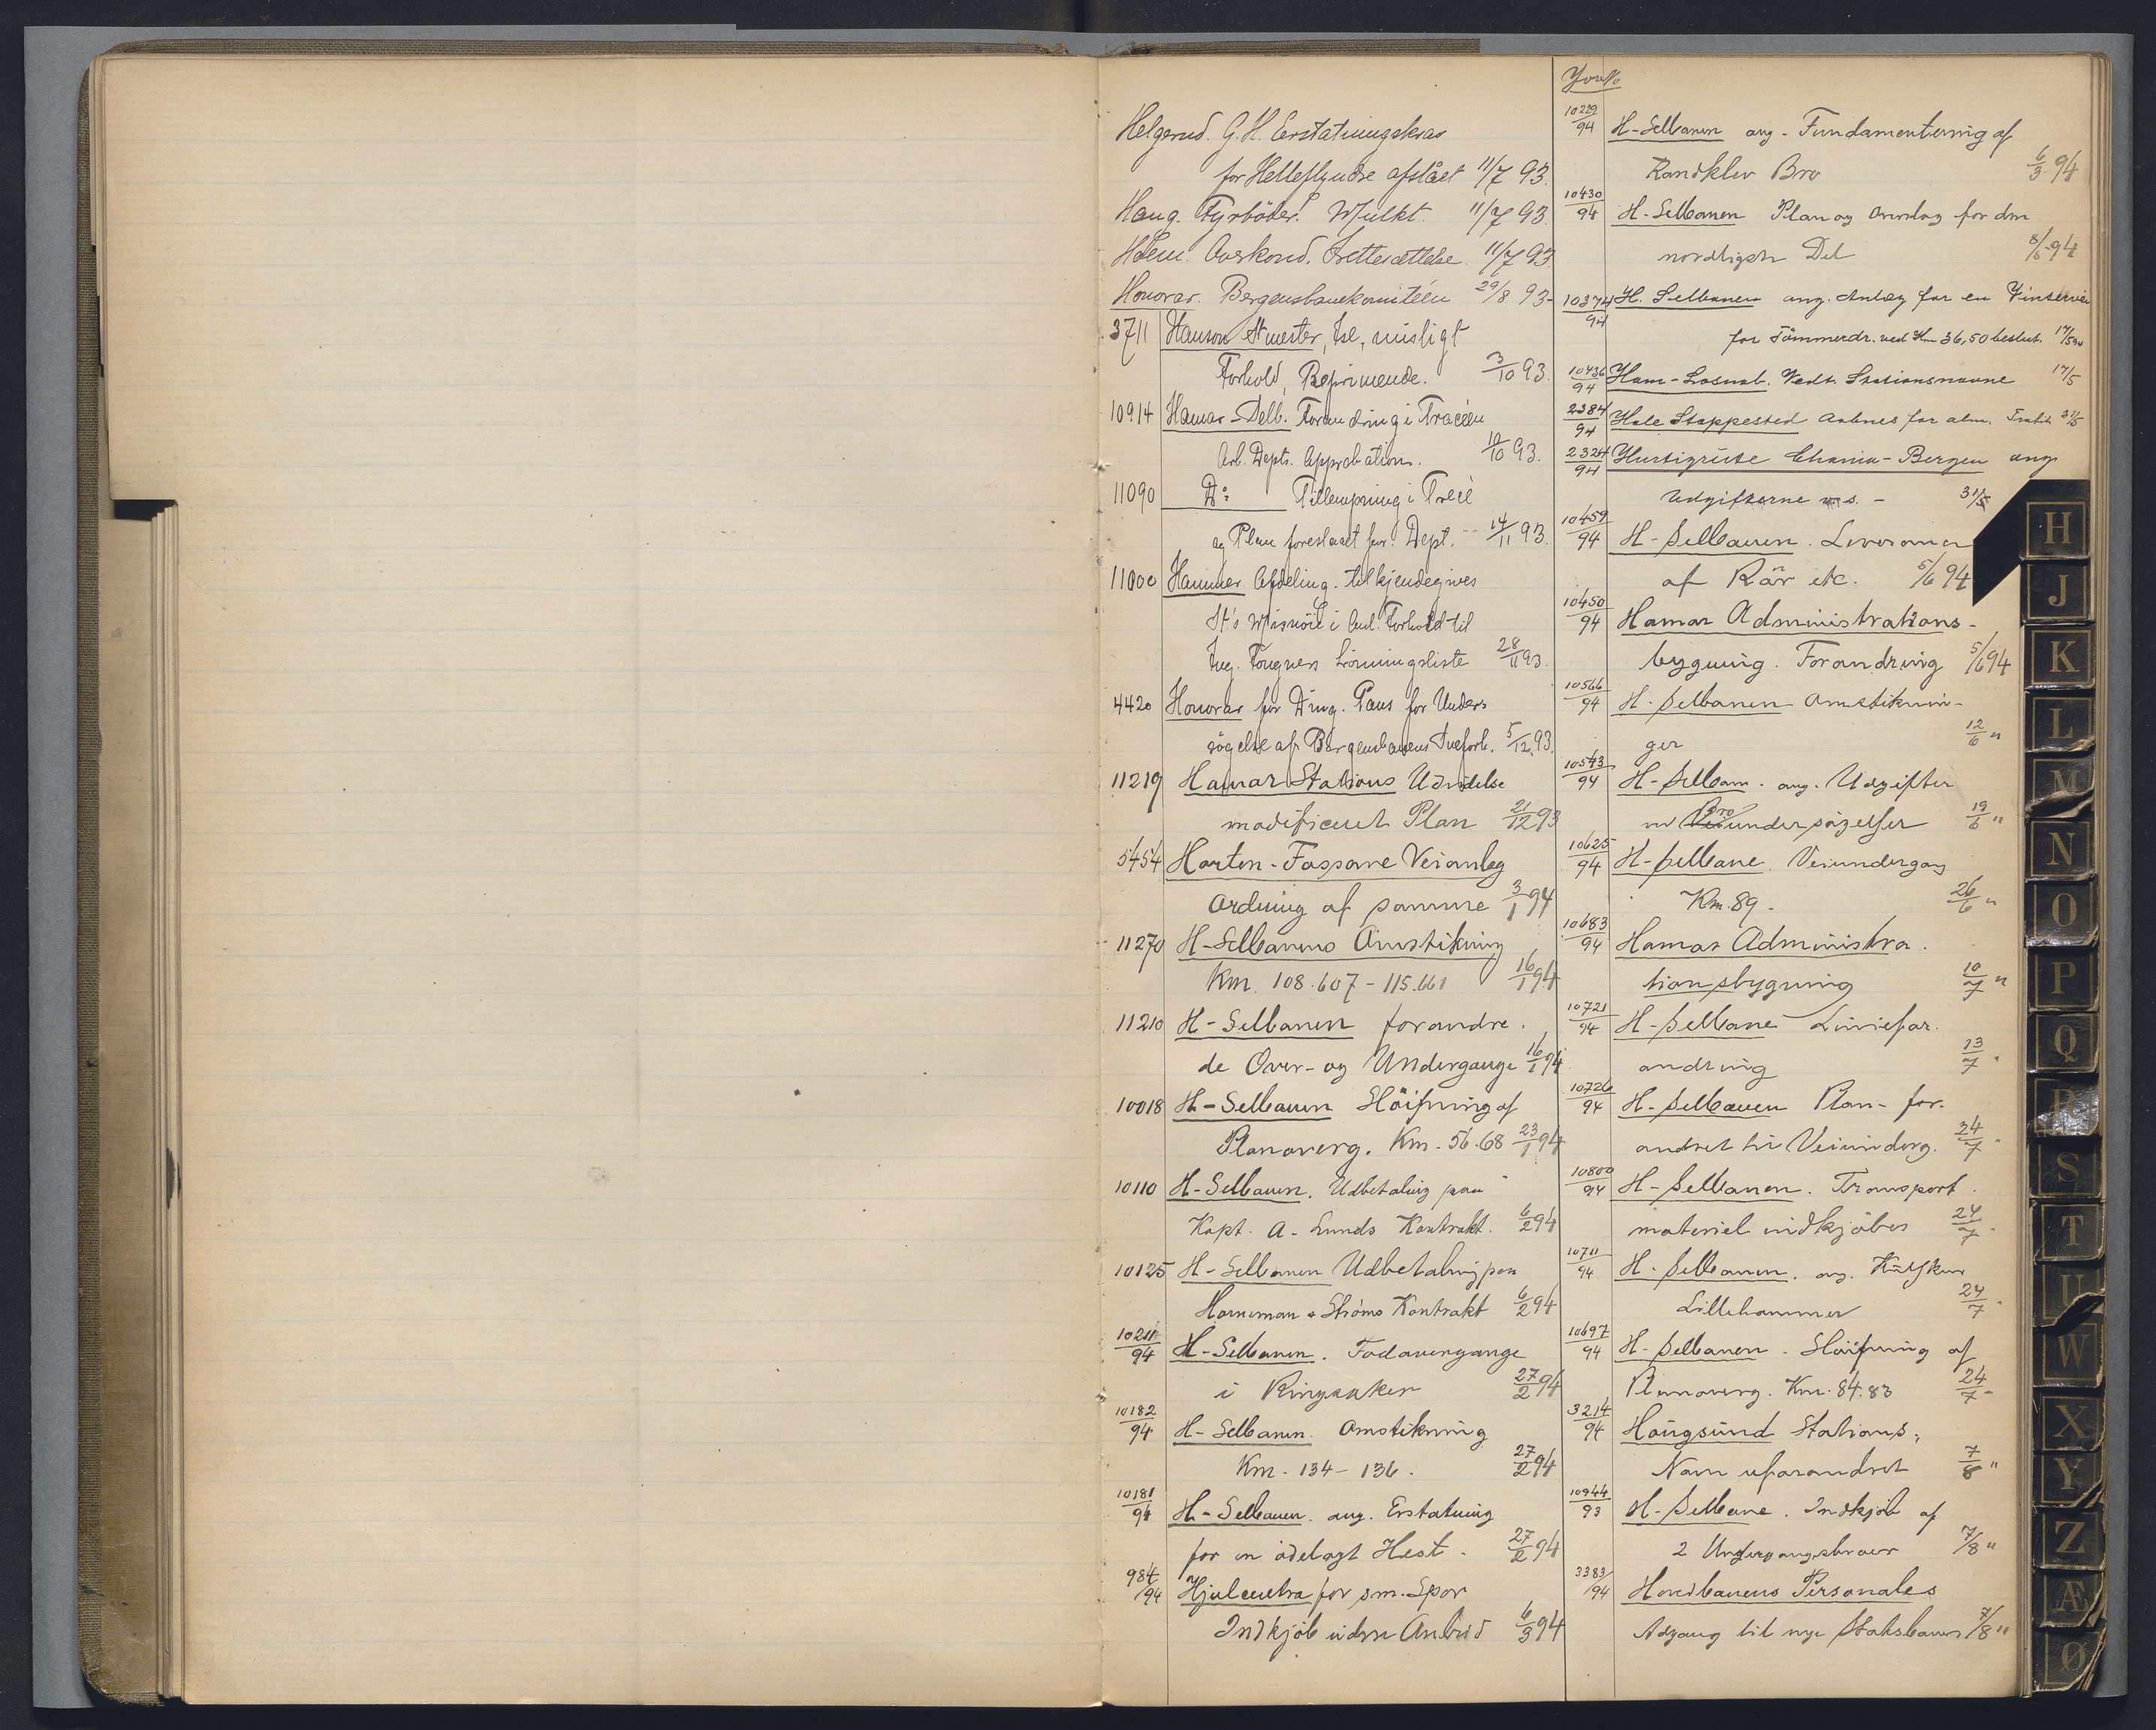 Helgerud. G. H. Erstatningskrav
for Helleflyndre afslået 11/7 93.
Haug. Fyrböder. Mulkt. 11/7 93
Holem. Ovekond. Irettesættelse 11/7 93
Honorar. Bergensbanekomitéen 29/8 93-
3711 Hanson Stmester, tse, misligt
Forhold, Reprimende. 3/10 93.
10914 Hamar-Selb. Forandring i Tracéen
Arb. Depts. Approbation. 10/10 93.
11090 Do Tillempning i Tracé
og Plan foreslaaet for Dept. 14/11 93.
11000 Hammer Afdeling. tilkjendegives
St's Misnöie i Anl. Forhold til
Ing. Tougners Lönningsliste 28/11 93.
4420 Honorar for Ding. Paus for Under-
sögelse af Bergensbanens Sneforh. 5/12 93.
11219 Hamar Stations Udvidelse
modificeret Plan 21/12 93
5454 Horten-Fossane Veianlæg
Ordning af samme 3/1 94
11270 H-Selbanens Omstikning
Km. 108.607 - 115.661 16/1 94
11210 H-Selbanen forandre.
de Over- og Undergange 16/1 94
10018 H-Selbanen Slöifning af
Planoverg. Km. 56.68 23/1 94
10110 H-Selbanen. Udbetaling paa
Kapt. A. Lunds Kontrakt. 6/2 94
10125 H-Selbanen Udbetaling paa
Horneman & Ströms Kontrakt 6/2 94
10211/94 H-Selbanen. Fodovergange
i Ringsaker 27/2 94
10182/94 H-Selbanen. Omstikning
Km. 134 - 136. 27/2 94
10181/94 H-Selbanen. ang. Erstatning
for en ödelagt Hest. 27/2 94
984/94 Hjulcentra for sm. Spor
Indkjöb uden Anbud 6/3 94
Jour No
10229/94 H-Selbanen ang. Fundamentering af
Randklev Bro 6/3 94
10430/94 H-Selbanen Plan og Overslag for den
nordligste Del 8/5 94
10374/94 H. Selbanen ang. Anlæg for en Vintervei
for Tömmerdr. ved Km 36,50 beslut. 17/5 94
10436/94 Ham-Losnab. Vedt. Stationsnavne 17/5
2384/94 Hole Stoppested aabnes for alm. Trafik 31/5
2324/94 Hurtigrute Chania-Bergen ang
Udgifterne m s. - 31/5
10459/94 H-Selbanen. Leverancer
af Rör etc. 5/6 94
10450/94 Hamar Administrations-
bygning. Forandring 5/6 94
10566/94 H. Selbanen Omstiknin-
ger 12/6 "
10543/94 H-Selban. ang. Udgifter
ved Broundersögelser 19/6 "
10625/94 H-Selbane. Veiundergang
Km. 89. 26/6 "
10683/94 Hamar Administra.
tionsbygning 10/7 "
10721/94 H-Selbane Liniefor.
andring 13/7 "
10726/94 H. Selbanen Plan- for.
andret til Veiunderg. 24/7 "
10800/94 H-Selbanen. Transport.
materiel indkjöbes 24/7 "
10711/94 H. Selbanen. ang. Kulskur
Lillehammer 24/7 "
10697/94 H-Selbanen. Slöifning af
Planoverg. Km. 84.83 24/7 -
3214/94 Hougsund Stations.
Navn uforandret 7/8 "
10944/93 H-Selbane. Indkjöb af
2 Undergangsbroer 7/8 "
3383/94 Hovedbanens Personales
Adgang til nye Statsbaner 7/8 "
H
J
K
L
M
N
O
P
Q
R
S
T
U
W
X
Y
Z
Æ
Ø